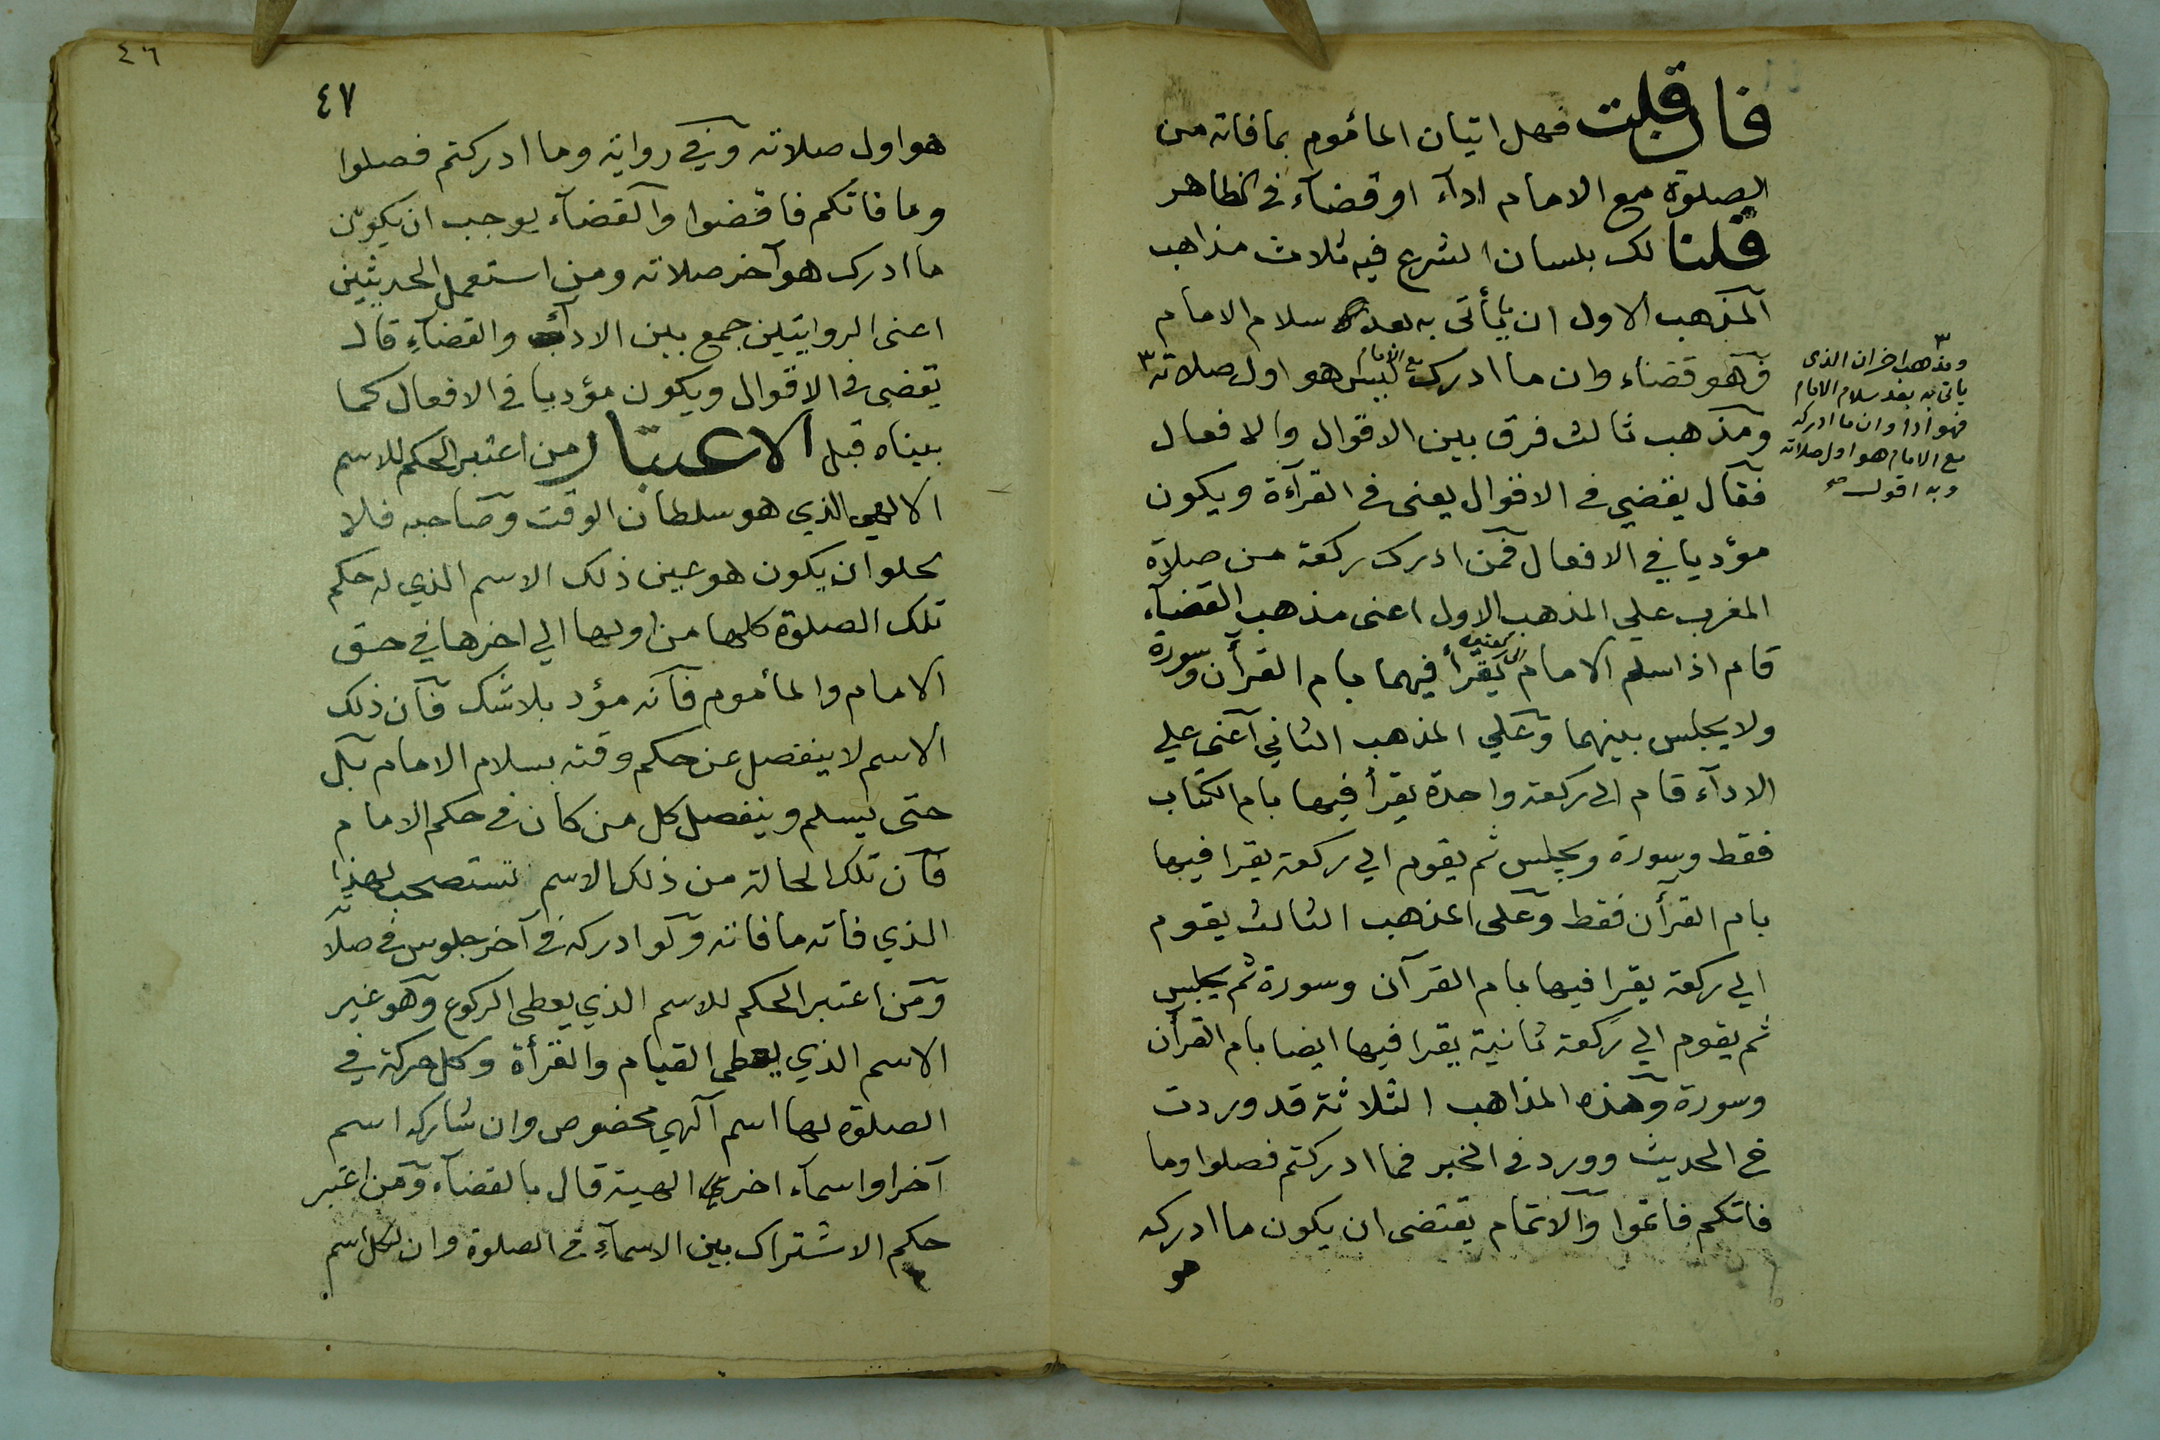 فان قلت فهل اتيان المأموم بما فاته من
الصلوة مع الامام اداء او قضاء في الظاهر
قلنا لك بلسان الشرع فيه ثلاث مذاهب
المذهب الاول ان ما يأتي به بعد سلام الامام
فهو قضاء وان ما ادرك مع الامام ليس هو اول صلاته ٣
ومذهب ثالث فرق بين الاقوال والافعال
فقال يقضي في الاقوال يعنى في القرآءة ويكون
مؤديا في الافعال فمن ادرك ركعة من صلاة
المغرب علي المذهب الاول اعنى مذهب القضآء
قام اذا سلم الامام الى ركعتين يقرأ فيهما بام القرأن وسورة
ولا يجلس بينهما وعلي المذهب الثاني اعنى علي
الادآء قام الى ركعة واحدة يقرأ فيها بام الكتاب
فقط وسورة ويجلس ثم يقوم الي ركعة يقرا فيها
بام القرآن فقط وعلى المذهب الثالث يقوم
الي ركعة يقرا فيها بام القرآن وسورة ثم يجلس
ثم يقوم الي ركعة ثانية يقرا فيها ايضا بام القرأن
وسورة وهذه المذاهب الثلاثة قد وردت
في الحديث وورد في الخبر فما ادركتم فصلوا وما
فاتكم فاتموا والاتمام يقتضى ان يكون ما ادركه
هو
٣
ومذهب اخر ان الذى
ياتي به بعد سلام الامام
فهو ادا وان ما ادركه
مع الامام هو اول صلاته
وبه اقول صح
٤٦
٤٧
هو اول صلاته وفي رواية وما ادركتم فصلوا
وما فاتكم فاقضوا والقضآء يوجب ان يكون
ما ادرك هو آخر صلاته ومن استعمل الحديثين
اعنى الروايتين جمع بين الادآء والقضآء قال
يقضى في الاقوال ويكون مؤديا في الافعال كما
بيناه قبل الاعتبار من اعتبر الحكم للاسم
الالهي الذي هو سلطان الوقت وصاحبه فلا
يخلو ان يكون هو عين ذلك الاسم الذي له حكم
تلك الصلوة كلها من اولها الي اخرها في حق
الامام والمأموم فانه مؤد بلا شك فان ذلك
الاسم لا ينفصل عن حكم وقته بسلام الامام بل
حتى يسلم وينفصل كل من كان في حكم الامام
فان تلك الحالة من ذلك الاسم تستصحب لهذا
الذي فاته ما فاته ولو ادركه في آخر جلوس في صلا
ومن اعتبر الحكم للاسم الذي يعطى الركوع وهو غير
الاسم الذي يعطى القيام والقرأة وكل حركة في
الصلوة لها اسم آلهي مخصوص وان شاركه اسم
آخر او اسمآء اخرى الهية قال بالقضآء ومن اعتبر
حكم الاشتراك بين الاسمآء في الصلوة وان لكل اسم